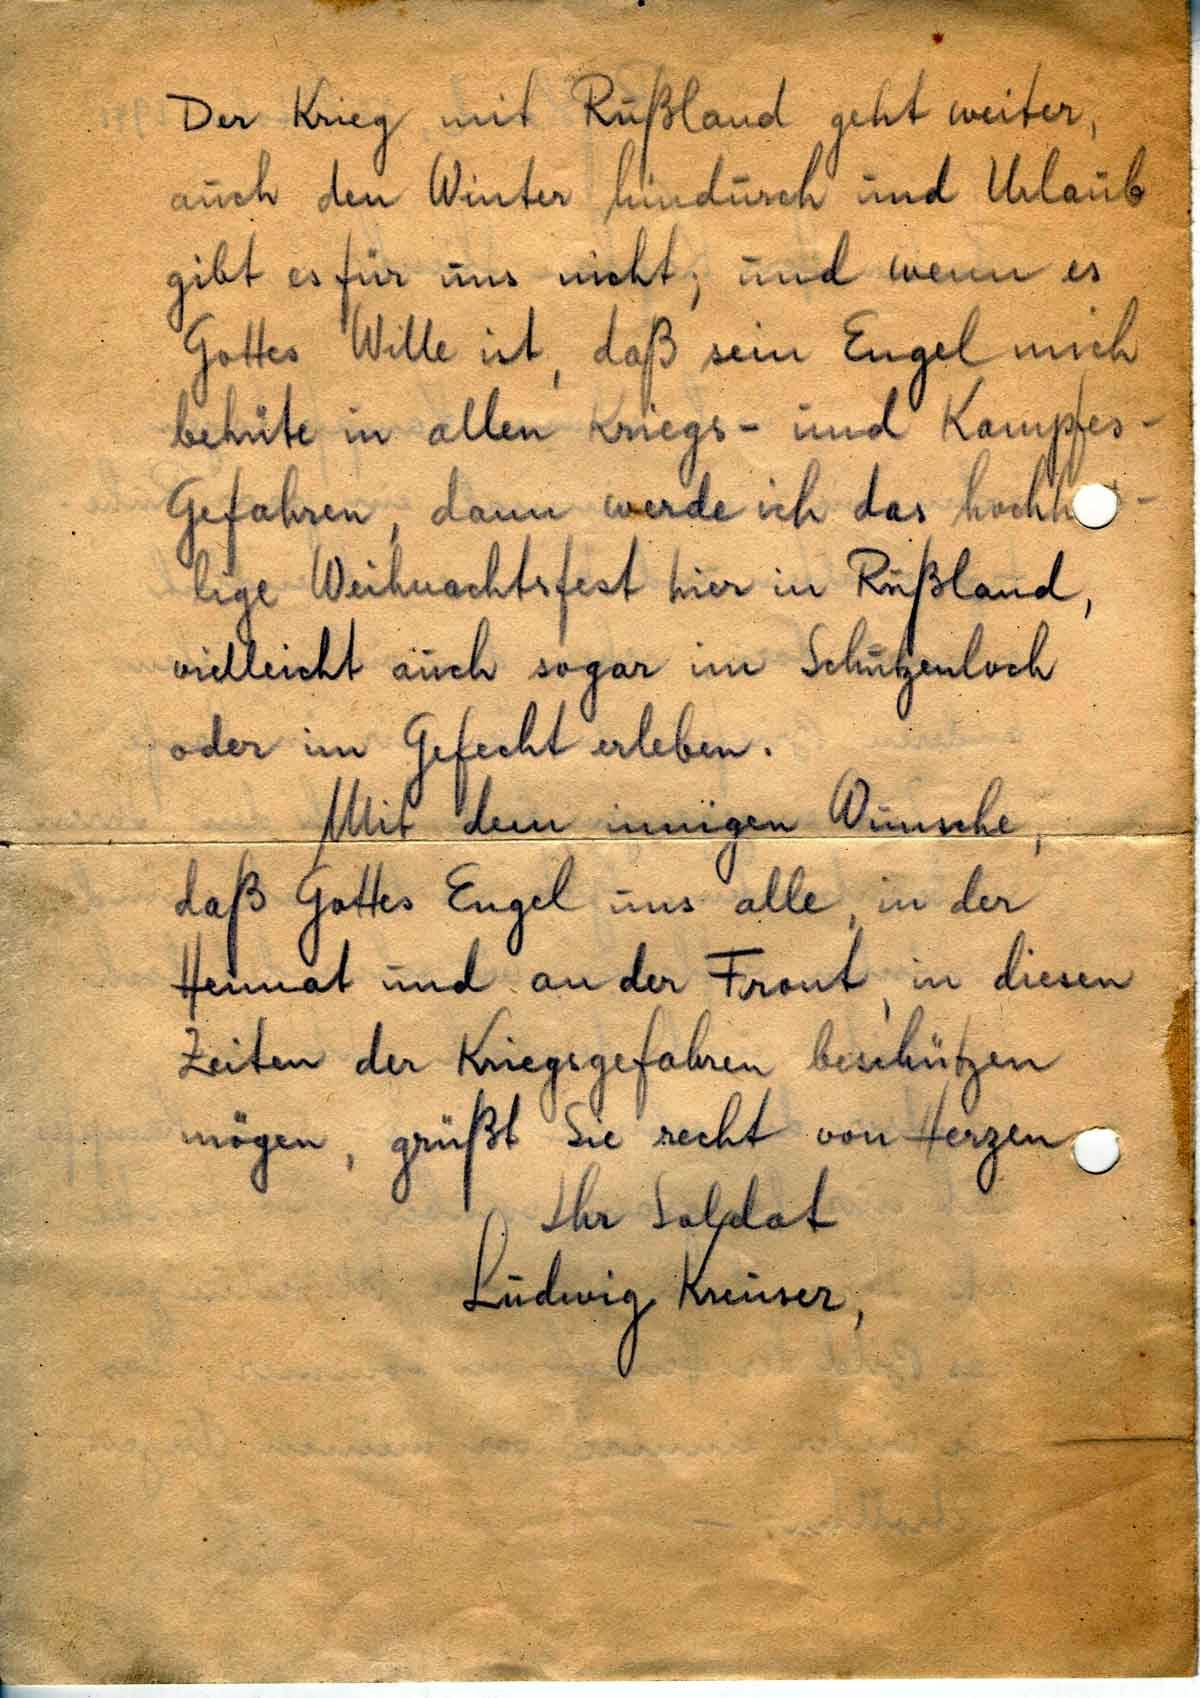 Der Krieg mit Rußland geht weiter,
auch den Winter hindurch und Urlaub
gibt es für uns nicht; und wenn es
Gottes Wille ist, daß sein Engel mich
behüte in allen Kriegs- und Kampfes-
Gefahren, dann werde ich das hochh
lige Weihnachtsfest hier in Rußland,
vielleicht auch sogar im Schützenloch
oder im Gefecht erleben.
Mit dem innigen Wunsche,
daß Gottes Engel uns alle, in der
Heimat und an der Front, in diesen
Zeiten der Kriegsgefahren beschützen
mögen, grüßt Sie recht von Herzen
Ihr Soldat
Ludwig Kreuser,